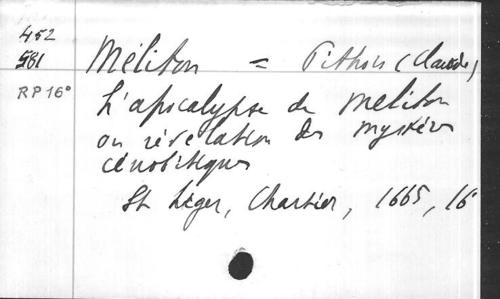 452
581
RP 16°
Méliton = Pithois (Claude)
L'apocalypse de Meliton
ou révélation des mystères
cénobitiques
St Léger, Chartier, 1665, 16°